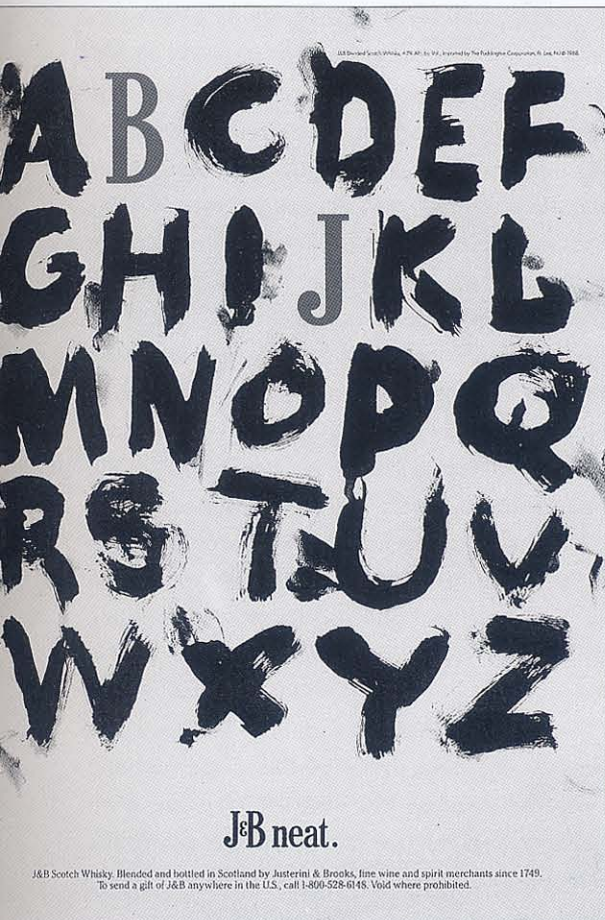 J&B Blended Scotch Whisky, 43% Alc. by Vol., Imported by The Paddington Corporation, Ft. Lee, NJ © 1988.
A B C D E F
G H I J K L
M N O P Q
R S T U V
W X Y Z
J&B neat.
J&B Scotch Whisky. Blended and bottled in Scotland by Justerini & Brooks, fine wine and spirit merchants since 1749.
To send a gift of J&B anywhere in the U.S., call 1-800-528-6148. Void where prohibited.